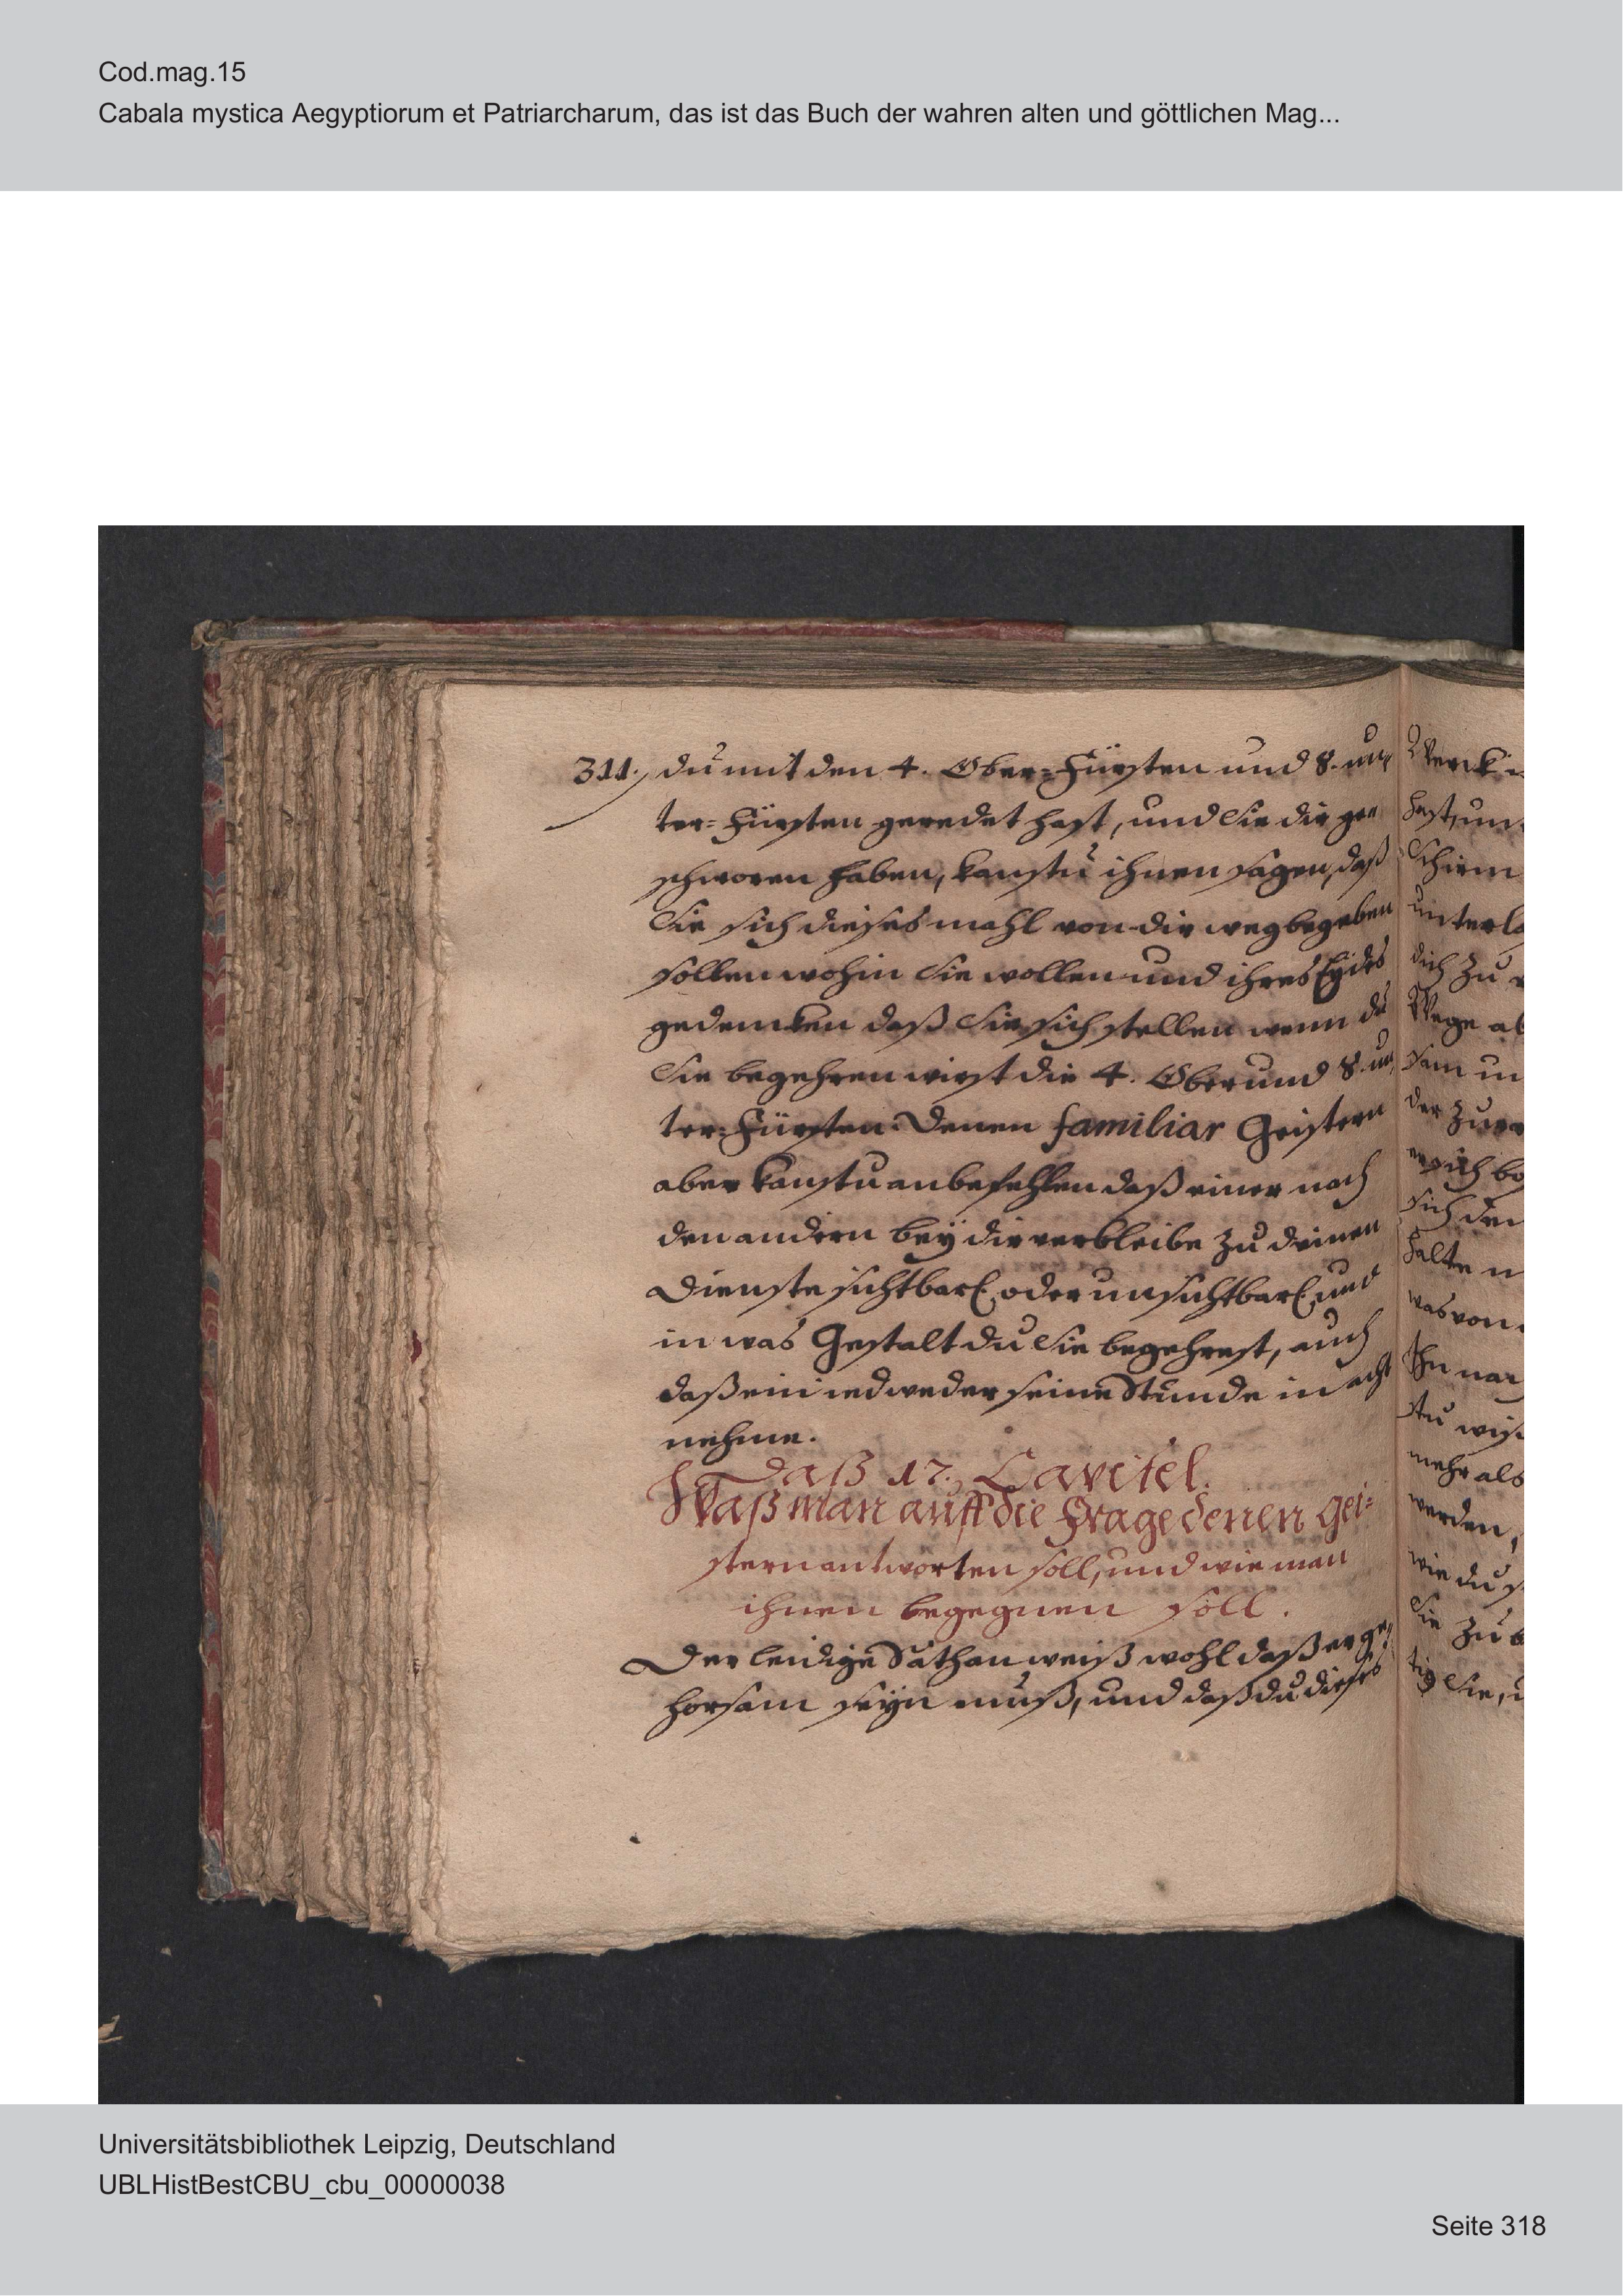 Cod.mag.15
Cabala mystica Aegyptiorum et Patriarcharum, das ist das Buch der wahren alten und göttlichen Mag...
311. du mit den 4. Ober=Fürsten und 8. un=
ter=Fürsten geredet hast, und Sie dir ge=
schworen haben, kanstu ihnen sagen, daß
Sie sich dieses mahl von dir weg begeben
sollen wohin Sie wollen und ihres Eÿdes
gedencken daß Sie sich stellen wenn du
Sie begehren wirst die 4. Ober und 8. un=
ter=Fürsten. Denen familiar Geistern
aber kanstu anbefehlen daß einer nach
den andern beÿ dir verbleibe zu deinen
Dienste sichtbarl. oder unsichtbarl. und
in was Gestalt du Sie begehrest, auch
daß ein iedweder seine Stunde in acht
nehme.
Daß 17. Capitel.
Waß man auff die Frage denen Gei=
stern antworten soll, und wie man
ihnen begegnen soll.
Der leidige Sathan weiß wohl daß er ge=
horsam seÿn muß, und daß du dieses
Werck
hast, un
Schirm
unterla
dich zu
Wege ab
sam un
der zu
sich be
sich den
halte
was von
Ihn nar
stu wis
mehr als
werden,
wie du
Sie zu
Sie, u
Universitätsbibliothek Leipzig, Deutschland
UBLHistBestCBU_cbu_00000038
Seite 318